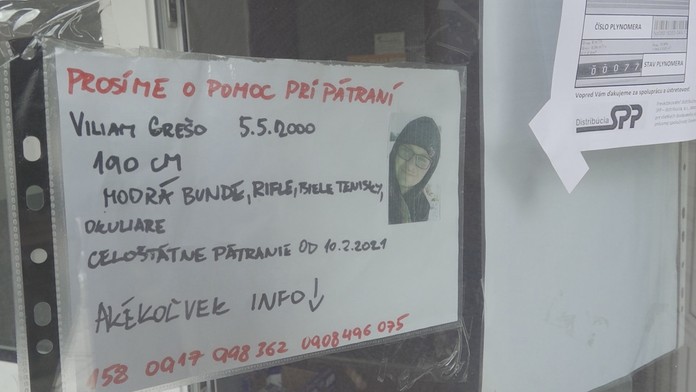 PROSÍME O POMOC PRI PÁTRANÍ
VILIAM GREŠO 5.5.2000
190 CM
MODRÁ BUNDE, RIFLE, BIELE TENISKY,
OKULIARE
CELOŠTÁTNE PÁTRANIE OD 10.2.2021
AKÉKOĽVEK INFO!
158 0917 998 362 0908 496 075
ČÍSLO PLYNOMERA
STAV PLYNOMERA
Vopred Vám ďakujeme za spoluprácu a ústretovosť
Distribúcia SPP